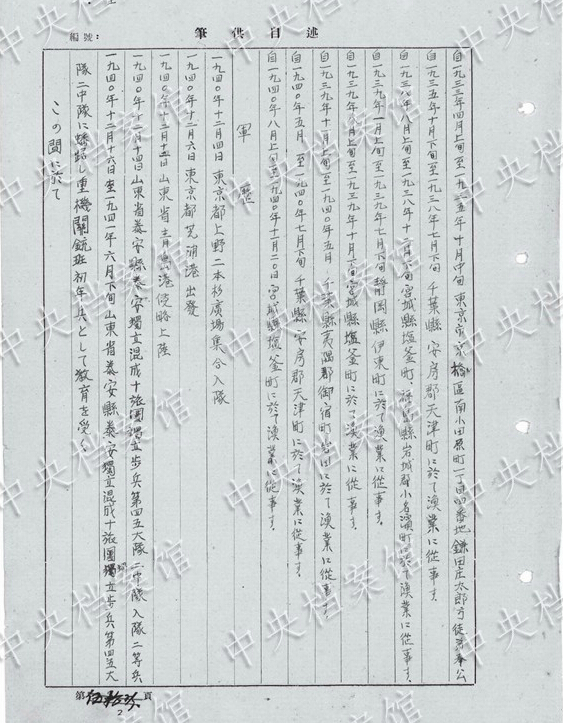 述自供筆
編號:
自一九三三年四月上旬至一九三五年十月中旬 東京市京橋區南小田原町一丁目四番地 鎌田庄太郎方 徒弟奉公
自一九三五年十月下旬至一九三八年七月下旬 千葉縣安房郡天津町に於て漁業に從事す.
自一九三八年八月上旬至一九三八年十二月下旬 宮城縣塩釜町. 福島縣岩城郡小名濱町に於て漁業に從事す.
自一九三九年一月上旬至一九三九年七月下旬 靜岡縣伊東町に於て漁業に從事す.
自一九三九年八月上旬至 宮城縣塩釜町に於て漁業に從事す.
自一九三九年十一月上旬至一九四〇年五月 千葉縣夷隅郡御宿町岩田に於て漁業に從事す.
自一九四〇年五月 至一九四〇年七月下旬 千葉縣安房郡天津町に於て漁業に從事す.
自一九四〇年八月上旬至一九四〇年十一月二〇日 宮城縣塩釜町に於て漁業に從事す.
軍歷
一九四〇年十二月四日 東京都上野二本杉廣場集合入隊
一九四〇年十二月六日 東京都芝浦港出發
一九四〇年十二月 山東省青島港侵略上陸
一九四〇年十二月 四日山東省泰安縣泰安獨立混成十旅團獨立步兵第四五大隊二中隊入隊二等兵
一九四〇年十二月十六日至一九四一年六月下旬 山東省泰安縣泰安獨立混成十旅團獨立步兵第四五大
隊二中隊に蟠踞し重機關銃班初年兵として教育を受く.
この間に於て
第 頁
2
中央档案馆